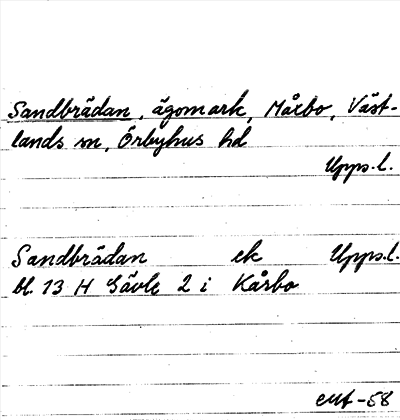 Sandbrädan, ägomark, Mårbo, Väst-
lands sn, Örbyhus hd
Upps.l.
Sandbrädan ek Upps.l.
bl. 13 H Gävle 2 i Kårbo